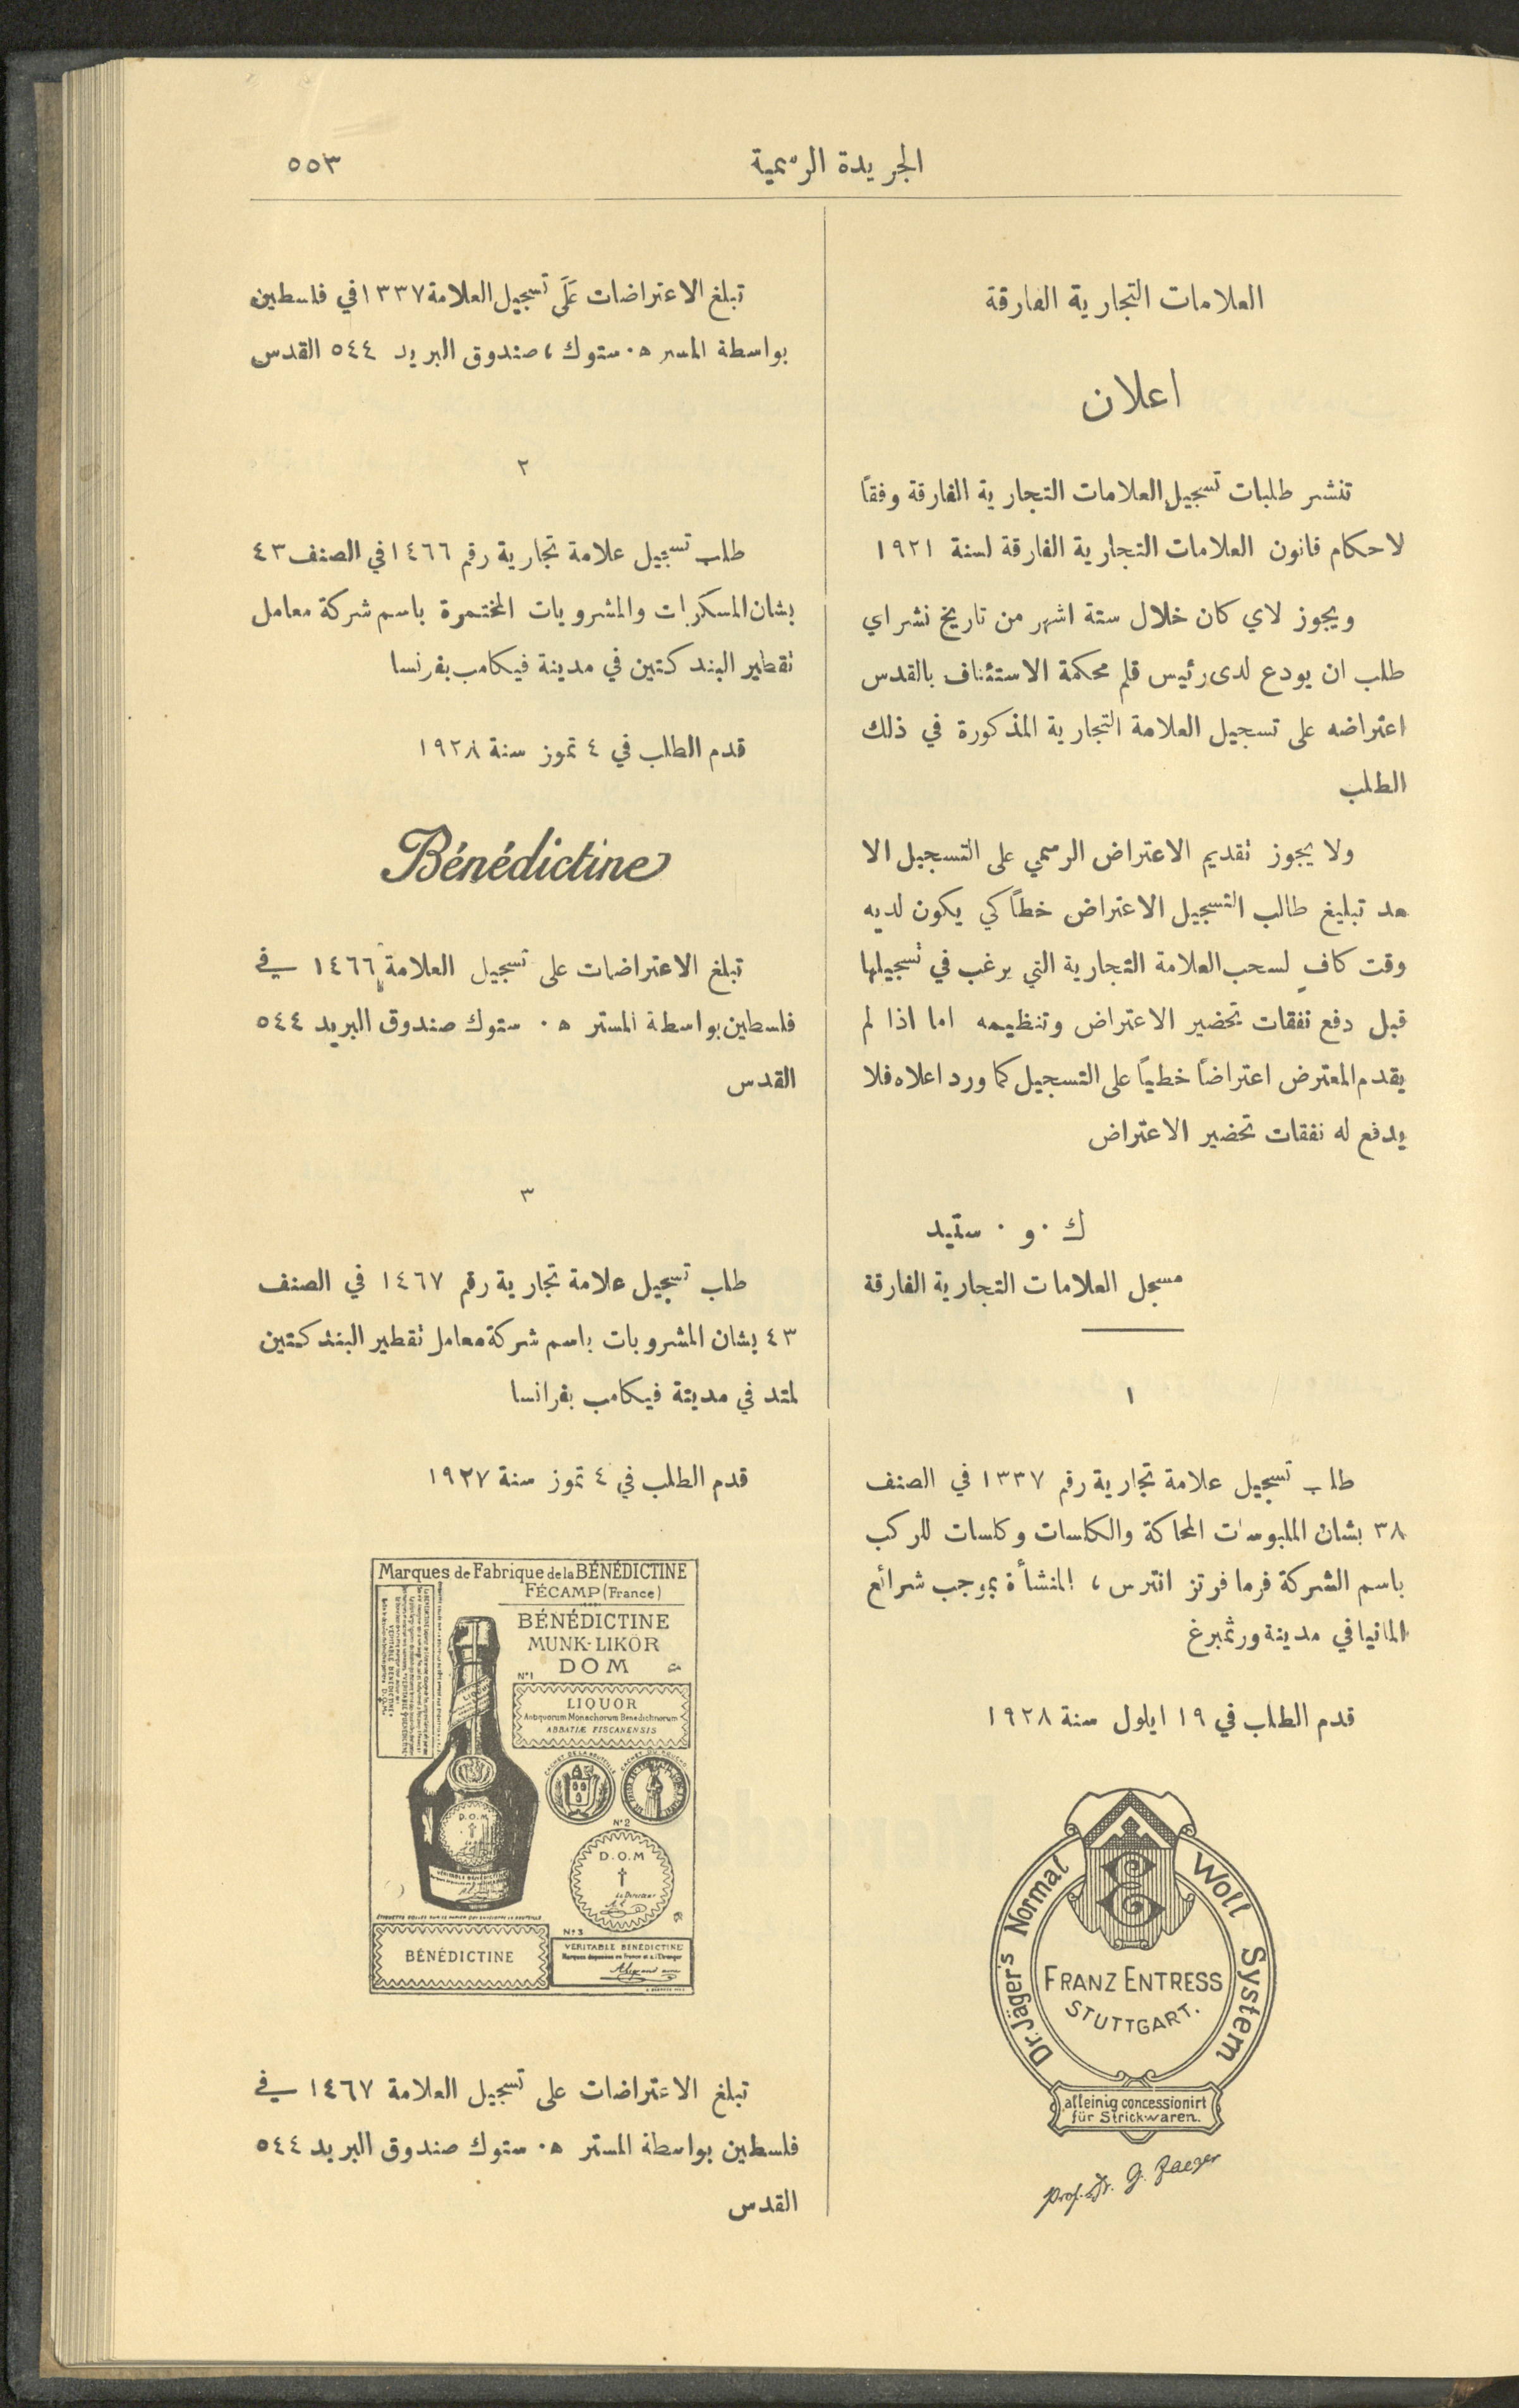 الجريدة الرسمية
٥٥٣
العلامات التجارية الفارقة
اعلان
تنشر طلبات تسجيل العلامات التجارية الفارقة وفقاً
لاحكام قانون العلامات التجارية الفارقة لسنة ١٩٢١
ويجوز لاي كان خلال ستة اشهر من تاريخ نشر اي
طلب ان يودع لدى رئيس قلم محكمة الاستئناف بالقدس
اعتراضه على تسجيل العلامة التجارية المذكورة في ذلك
الطلب
ولا يجوز تقديم الاعتراض الرسمي على التسجيل الا
بعد تبليغ طالب التسجيل الاعتراض خطاً كي يكون لديه
وقت كافٍ لسحب العلامة التجارية التي يرغب في تسجيلها
قبل دفع نفقات تحضير الاعتراض وتنظيمه اما اذا لم
يقدم المعترض اعتراضاً خطياً على التسجيل كما ورد اعلاه فلا
يدفع له نفقات تحضير الاعتراض
ك ٠ و ٠ ستيد
مسجل العلامات التجارية الفارقة
١
طلب تسجيل علامة تجارية رقم ١٣٣٧ في الصنف
٣٨ بشان الملبوسات المحاكة والكلسات وكلسات للركب
باسم الشركة فرما فرتز انترس ، المنشأة بموجب شرائع
المانيا في مدينة ورتمبرغ
قدم الطلب في ١٩ ايلول سنة ١٩٢٨
Dr. Jäger's Normal Woll System
FRANZ ENTRESS
STUTTGART.
alleinig concessionirt
für Strickwaren.
Prof. Dr. G. Jaeger
تبلغ الاعتراضات عَلَى تسجيل العلامة ١٣٣٧ في فلسطين
بواسطة المستر ه ٠ ستوك ، صندوق البريد ٥٤٤ القدس
٢
طلب تسجيل علامة تجارية رقم ١٤٦٦ في الصنف ٤٣
بشان المسكرات والمشروبات المختمرة باسم شركة معامل
تقطير البندكتين في مدينة فيكامب بفرنسا
قدم الطلب في ٤ تموز سنة ١٩٢٨
Bénédictine
تبلغ الاعتراضات على تسجيل العلامة ١٤٦٦ في
فلسطين بواسطة المستر ه ٠ ستوك صندوق البريد ٥٤٤
القدس
٣
طلب تسجيل علامة تجارية رقم ١٤٦٧ في الصنف
٤٣ بشان المشروبات باسم شركة معامل تقطير البندكتين
لمتد في مدينة فيكامب بفرانسا
قدم الطلب في ٤ تموز سنة ١٩٢٧
Marques de Fabrique de la BÉNÉDICTINE
FÉCAMP (France)
BÉNÉDICTINE
MUNK-LIKÖR
DOM
N°1
LIQUOR
Antiquorum Monachorum Benedictinorum
ABBATIÆ FISCANENSIS
CACHET DE LA BOUTEILLE
N°2
D.O.M
D.O.M
Le Directeur
VÉRITABLE BÉNÉDICTINE
N°3
BÉNÉDICTINE
VÉRITABLE BÉNÉDICTINE
Marques déposées en France et à l'Étranger
تبلغ الاعتراضات على تسجيل العلامة ١٤٦٧ في
فلسطين بواسطة المستر ه ٠ ستوك صندوق البريد ٥٤٤
القدس